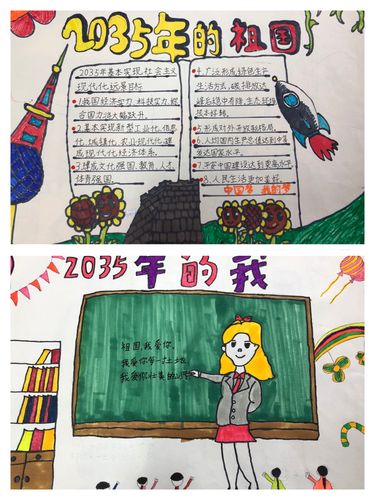 2035年的祖国
2035年基本实现社会主义
现代化远景目标
1.我国经济实力、科技实力、综
合国力活大幅跃升。
2.基本实现新型工业化、信息
化、城镇化、农业现代化,建
成现代化经济体系。
3.建成文化强国、教育、人才、
体育强国
4.广泛形成绿色生产
生活方式,碳排放达
峰后稳中有降,生态环境
根本好转。
5.形成对外开放新格局。
6.人均国内生产总值达到中等
发达国家水平。
7.平安中国建设达到更高水平
8.人民生活更加美好。
中国梦 我的梦
2035年的我
祖国,我爱你,
我爱你每一寸土地
我爱你壮美的山河